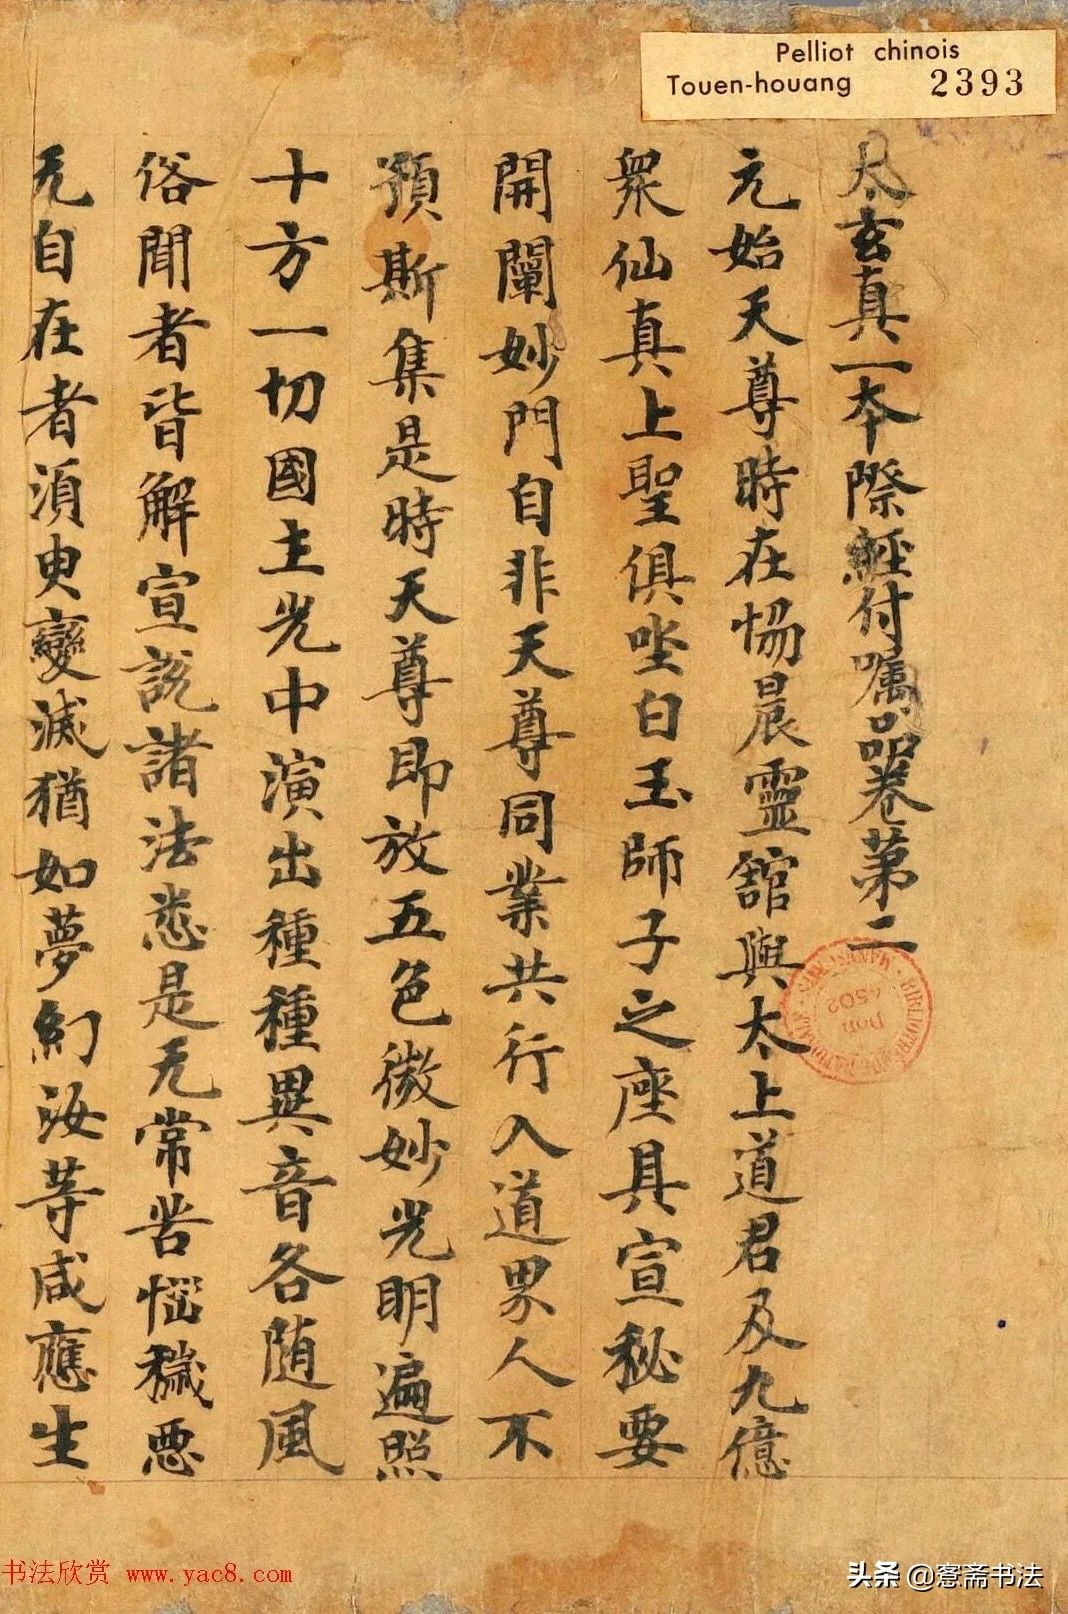 Pelliot chinois
Touen-houang 2393
太玄真一本際經付嘱品卷苐二
元始天尊時在惕晨靈舘與太上道君及九億
衆仙真上聖俱坐白玉師子之座具宣秘要
開闡妙門自非天尊同業共行入道界人不
預斯集是時天尊即放五色微妙光明遍照
十方一切國主光中演出種種異音各随風
俗聞者皆解宣説諸法悉是无常苦惱穢惡
无自在者湏臾變滅猶如夢幻汝等咸應生
BIBLIOTHEQUE NATIONALE MANUSCRITS
DON
4502
书法欣赏 www.yac8.com
头条 @愙斋书法